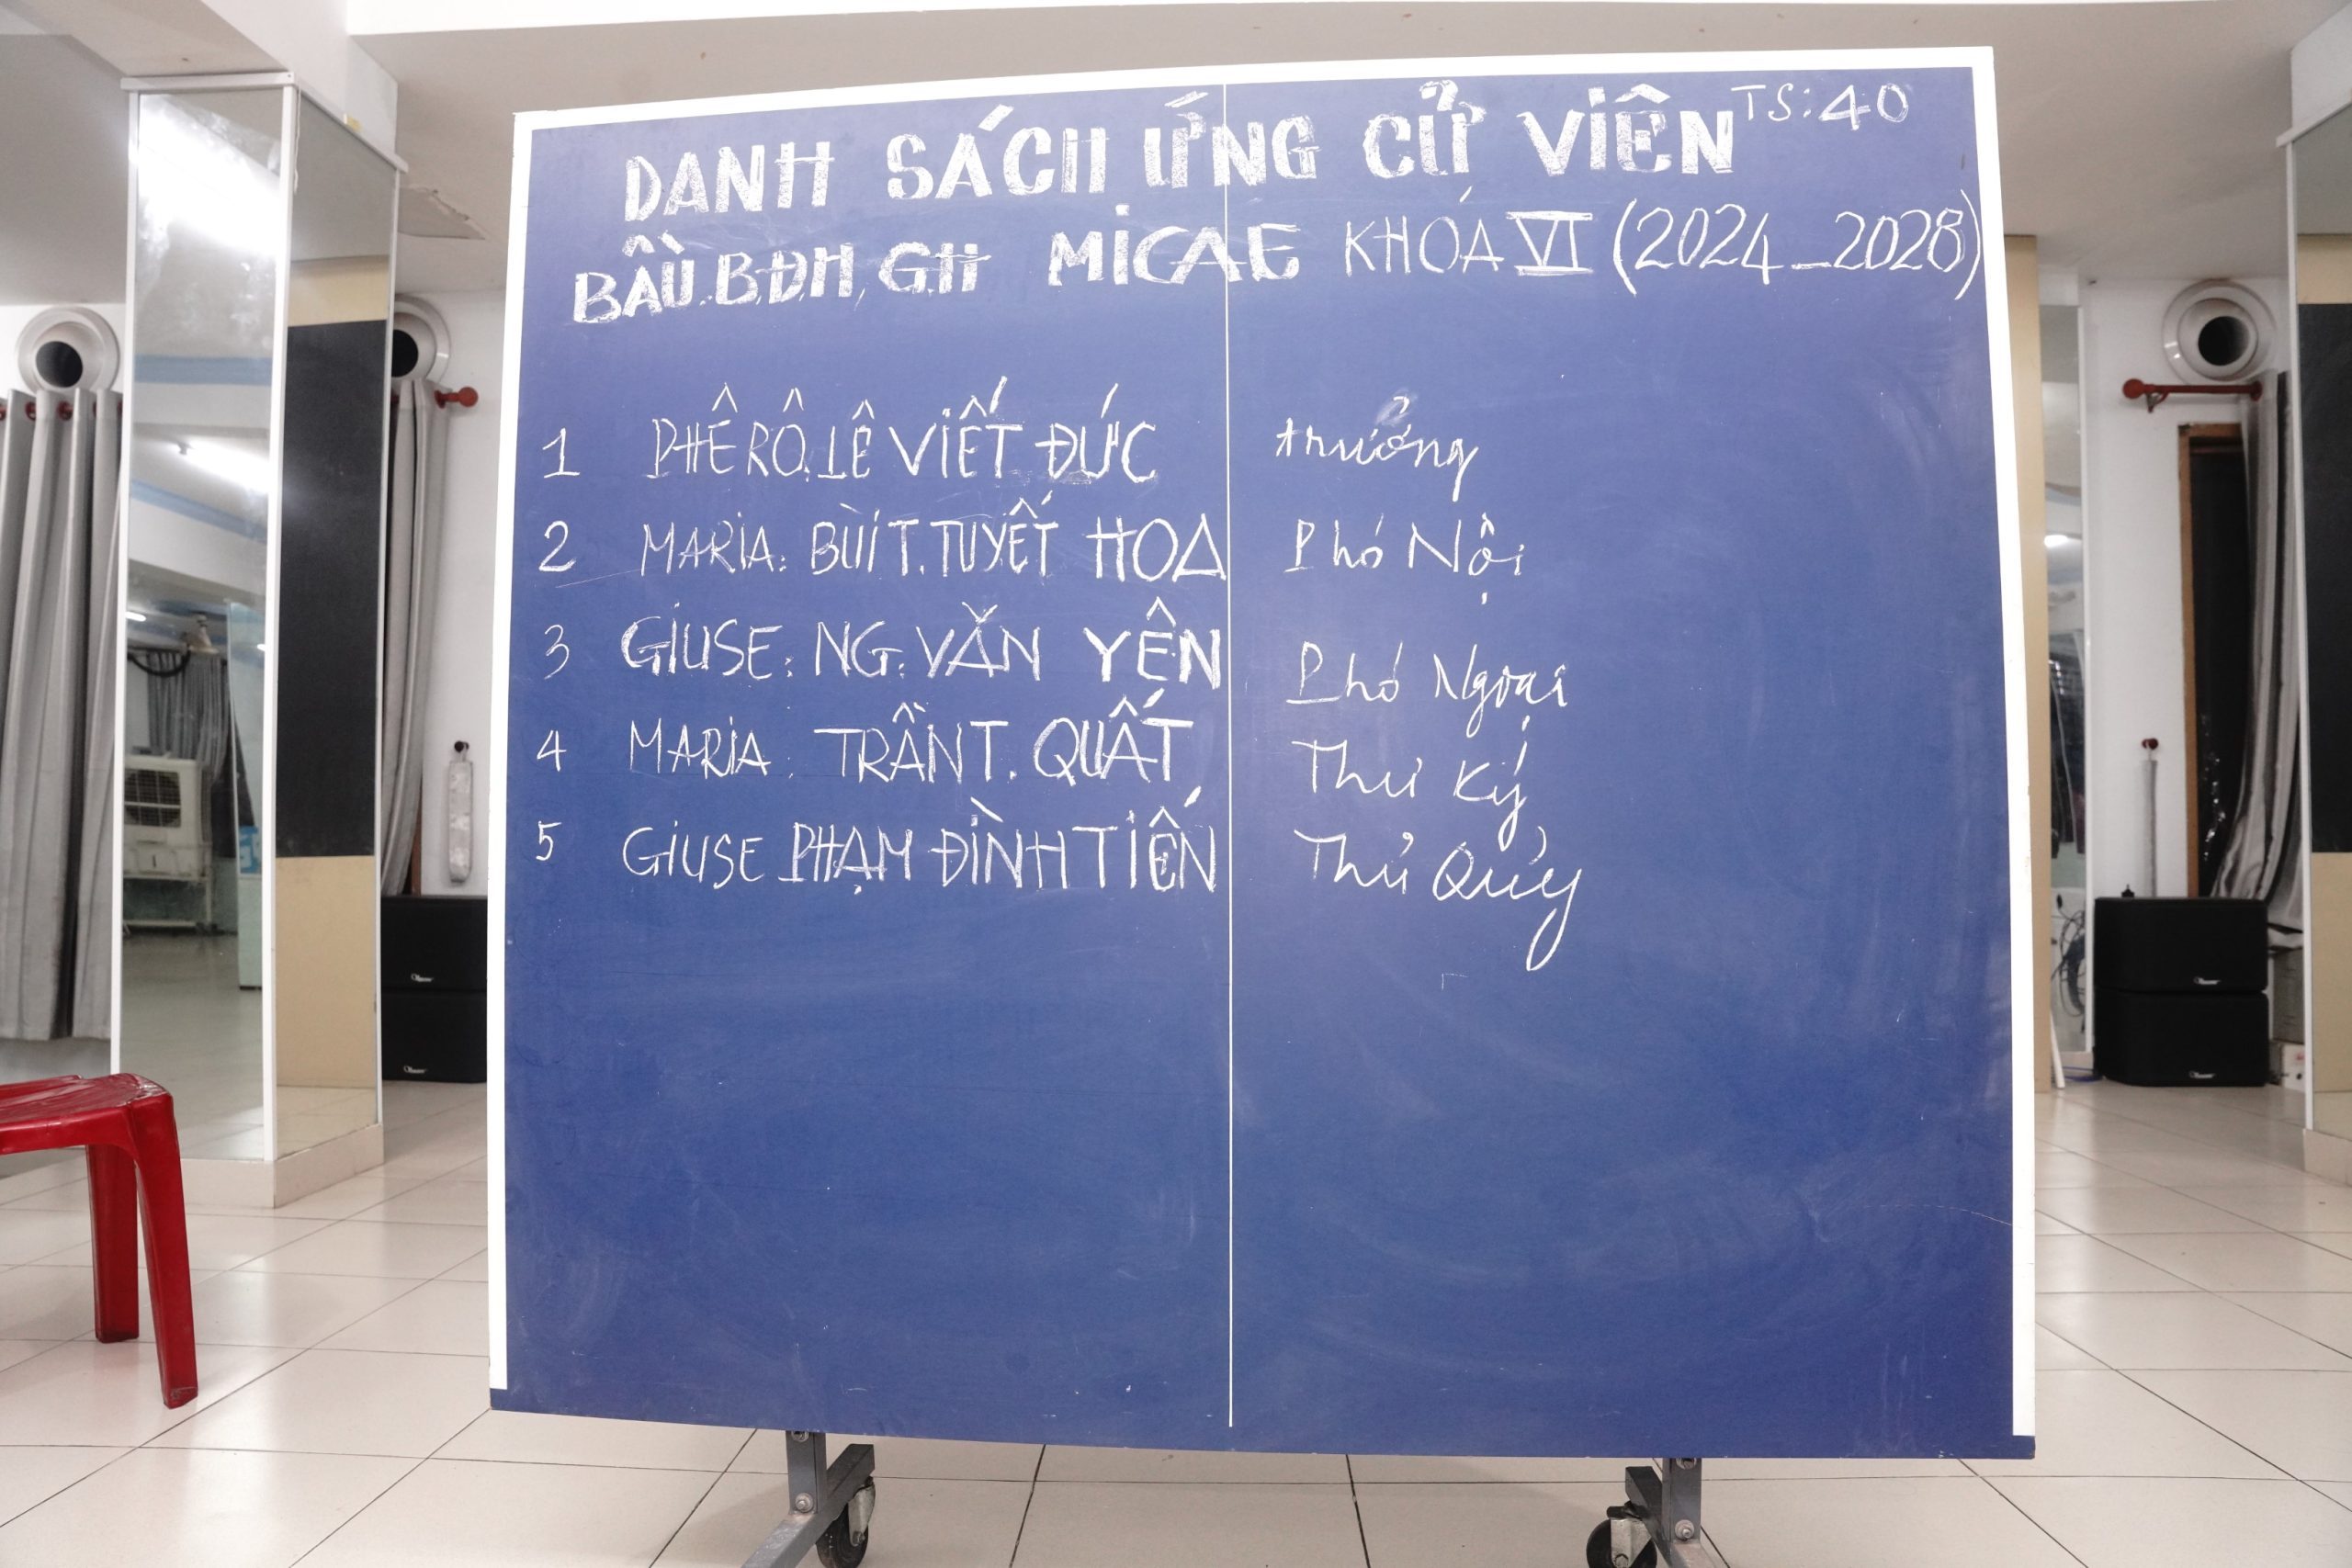 DANH SÁCH ỨNG CỬ VIÊN TS: 40
BẦU BĐH, GH MICAE KHÓA VI (2024_2028)
1 PHÊRÔ. LÊ VIẾT ĐỨC trưởng
2 MARIA: BÙI T. TUYẾT HOA Phó Nội
3 GIUSE: NG. VĂN YÊN Phó Ngoại
4 MARIA: TRẦN T. QUẤT Thư Ký
5 GIUSE PHẠM ĐÌNH TIẾN Thủ Qủy